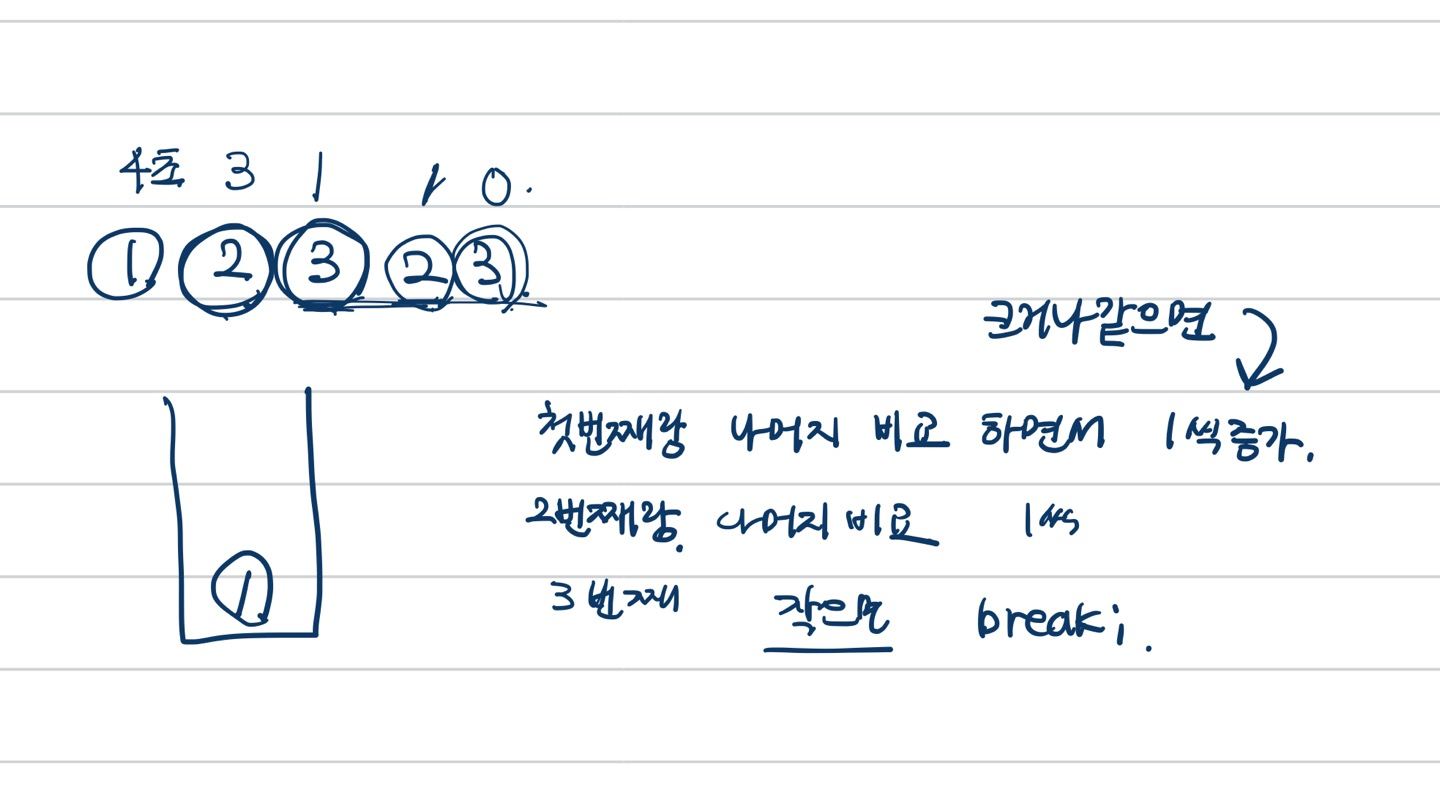 4초 3 1 1 0.
1 2 3 2 3
크거나같으면
첫번째랑 나머지 비교 하면서 1씩증가.
2번째랑. 나머지 비교 1씩
3번째 작으면 break;.
1